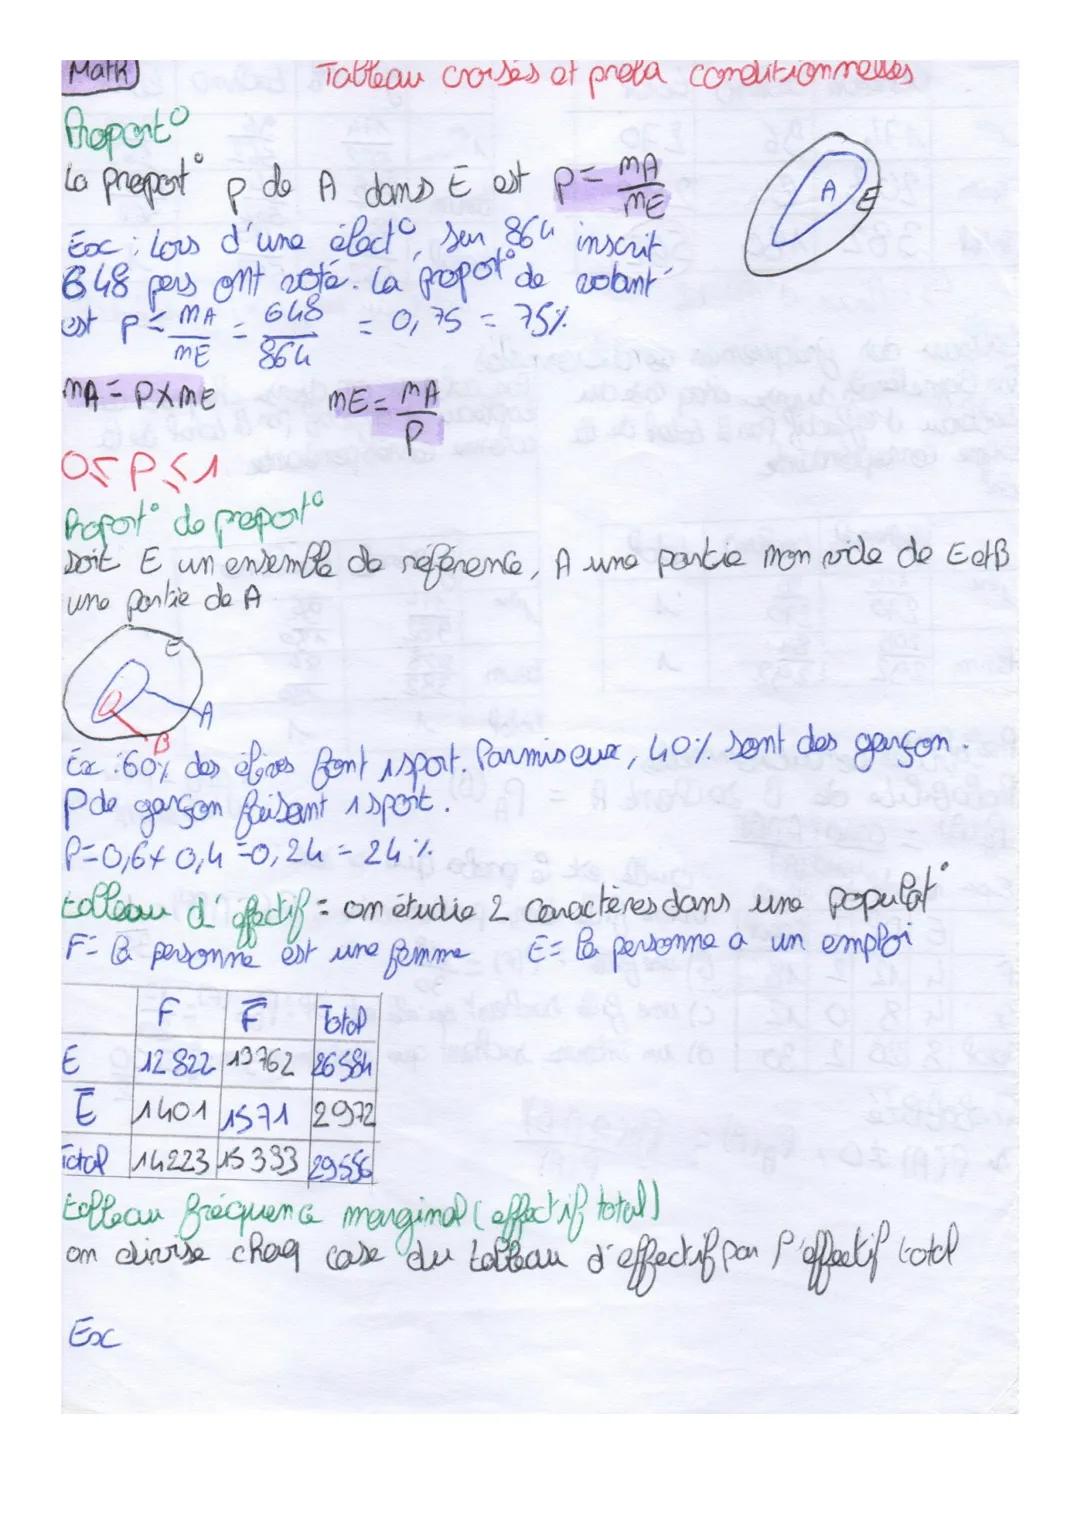 Math
Tableau croisés et proba conditionnelles
Proport°
La proport° p de A dans E est p = nA/nE
A E
Ex : Lors d'une élect°, sur 864 inscrit
648 pers ont voté. La proport° de votant
est p = nA/nE = 648/864 = 0,75 = 75%
nA = P×nE nE = nA/P
0 ≤ P ≤ 1
Proport° de proport°
Soit E un ensemble de référence, A une partie non vide de E et B
une partie de A
E
A
B
Ex : 60% des élèves font 1 sport. Parmis eux, 40% sont des garçon.
P de garçon faisant 1 sport.
P=0,6×0,4=0,24 = 24%
tableau d'effectif = on étudie 2 caractères dans une populat°
F= la personne est une femme E= la personne a un emploi
F F̅ Total
E 12 822 13762 26584
E̅ 1401 1571 2972
Total 14223 15 333 29556
tableau fréquence marginal (effectif total)
on divise chaq case du tableau d'effectif par l'effectif total
Ex